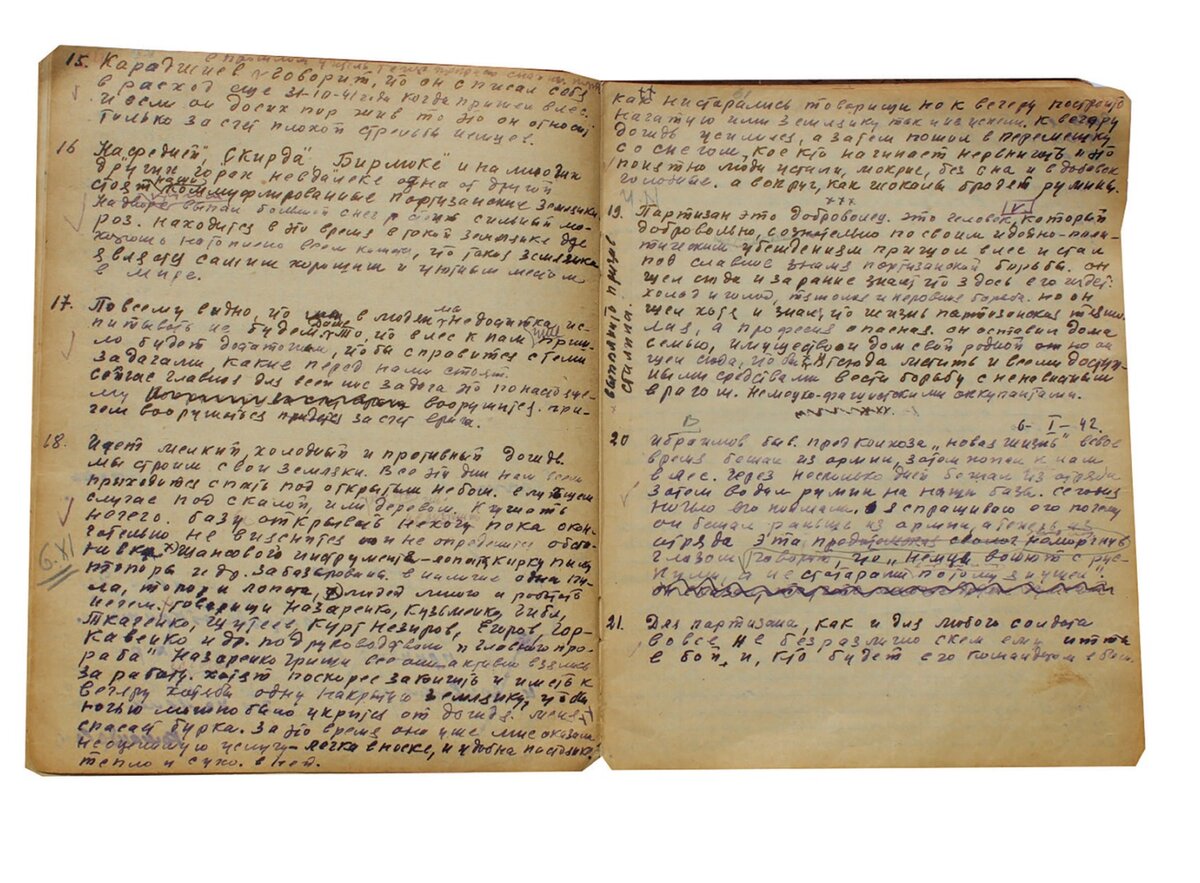 15. Карадшиев говорит, что он списал себя
в расход еще 31-10-41 года когда пришел в лес.
и если он до сих пор жив то это он относит
только за счет плохой стрельбы немцев.
16 На „Средней", „Скирда", „Бирюке" и на многих
других горах невдалеке одна от другой
стоят наши партизанские землянки
на дворе выпал большой снег и стоит сильный мо-
роз. находится в это время в такой землянке где
хорошо натоплено что такая землянка
является самым хорошим и уютным местом
в мире.
17. По всему видно, что в людях мы недостатка ис-
питывать не будем. то, что в лес к нам
ло будет достаточно, чтобы справится с теми
задачами, какие перед нами стоят.
сейчас главная для всех нас задача это по настояще-
му вооружится. при-
чем вооружиться за счет врага.
18. Идет мелкий, холодный и противный дождь.
мы строим свои землянки. Все эти дни нам всем
приходится спать под открытым небом. в лучшем
случае под скалой, или деревом. Кушать
нечего. базу открывать не хочу пока окон-
чательно не выяснится и не определится обста-
новка. Шансового инструмента - лопат, кирку пилу
топоры и др. в наличие одна пи-
ла, топор и лопата, людей много и работать
нечем. товарищи Назаренко, Кузьменко, Чибя,
Ткаченко, Шутеев, Курт Незиров, Егоров, Гор-
кавенко и др. под руководством „главного про-
раба" Назаренко Гриши все они активно взялись
за работу. хотят поскорее закончить и иметь к
вечеру хотябы одну накрытую землянку, чтобы
ночью можно было укрыться от дождя. меня
спасает бурка. За это время она уже мне оказала
неоценимую услугу - легка в носке, и удобна
тепло и сухо в ней.
6.XI
как нистарались товарищи но к вечеру построить
начатую ими землянку так и не успели. К вечеру
дождь усилился, а затем пошол в перемешку
со снегом. Кое кто начинает нервничать и это
понятно люди устали, мокрые, без сна и в добавок
голодные. а вокруг, как шокалы бродят румыны.
ххх
19. Партизан это доброволец. это человек, который
добровольно, сознательно по своим идейно-поли-
тическим убеждениям пришол в лес и стал
под славное знамя партизанской борьбы. он
шел сюда и зарание знал что здесь его ждет:
холод и голод, тяжолая и неровная борьба. но он
шел хотя и знал, что жизнь партизанская тяжо-
лая, а професия опасная. он оставил дома
семью, имущество и дом свой родной но он
шел сюда, чтобы отсюда мстить и всеми доступ-
ными средствами вести борьбу с ненавистным
врагом. немецко-фашистскими оккупантами.
выполняю призыв
Сталина.
6- I - 42.
20 Ибраимов быв. пред колхоза „новая жизнь" во свое
время бежал из армии, затем попал к нам
в лес. Через несколько дней бежал из отряда
затем водил румын на наши базы. Сегодня
ночью его поймали. я спрашиваю его почему
он бежал раньше из армии, а теперь из
отряда
глазом говорит, что „немцы воюют с рус-
21. Для партизана, как и для любого солдата
вовсе не безразлично с кем ему итти
в бой, и, кто будет его командиром в бою.